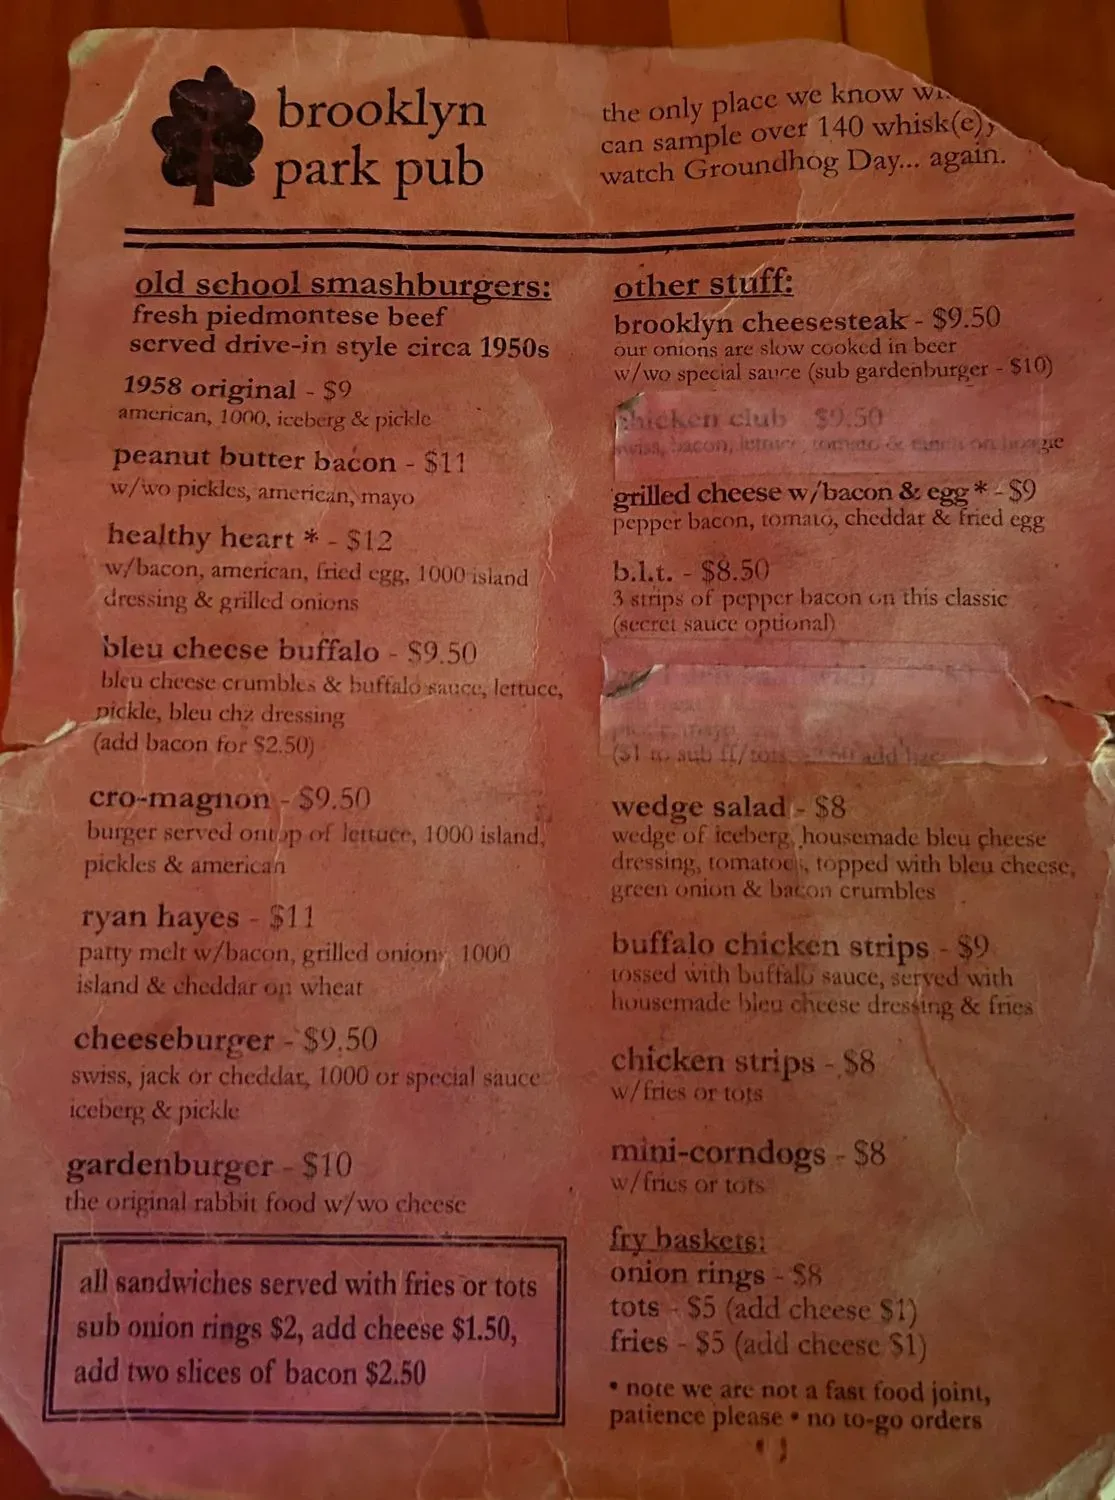 brooklyn
park pub
the only place we know
can sample over 140 whisk(e)y
watch Groundhog Day... again.
old school smashburgers:
fresh piedmontese beef
served drive-in style circa 1950s
1958 original - $9
american, 1000, iceberg & pickle
peanut butter bacon - $11
w/wo pickles, american, mayo
healthy heart * - $12
w/bacon, american, fried egg, 1000 island
dressing & grilled onions
bleu cheese buffalo - $9.50
bleu cheese crumbles & buffalo sauce, lettuce,
pickle, bleu chz dressing
(add bacon for $2.50)
cro-magnon - $9.50
burger served ontop of lettuce, 1000 island,
pickles & american
ryan hayes - $11
patty melt w/bacon, grilled onions, 1000
island & cheddar on wheat
cheeseburger - $9.50
swiss, jack or cheddar, 1000 or special sauce
iceberg & pickle
gardenburger - $10
the original rabbit food w/wo cheese
all sandwiches served with fries or tots
sub onion rings $2, add cheese $1.50,
add two slices of bacon $2.50
other stuff:
brooklyn cheesesteak - $9.50
our onions are slow cooked in beer
w/wo special sauce (sub gardenburger - $10)
chicken club $9.50
swiss, bacon, lettuce, tomato & on hoagie
grilled cheese w/bacon & egg * - $9
pepper bacon, tomato, cheddar & fried egg
b.l.t. - $8.50
3 strips of pepper bacon on this classic
(secret sauce optional)
($1 to sub ff/tots add
wedge salad - $8
wedge of iceberg, housemade bleu cheese
dressing, tomatoes, topped with bleu cheese,
green onion & bacon crumbles
buffalo chicken strips - $9
tossed with buffalo sauce, served with
housemade bleu cheese dressing & fries
chicken strips - $8
w/fries or tots
mini-corndogs - $8
w/fries or tots
fry baskets:
onion rings - $8
tots - $5 (add cheese $1)
fries - $5 (add cheese $1)
• note we are not a fast food joint,
patience please • no to-go orders